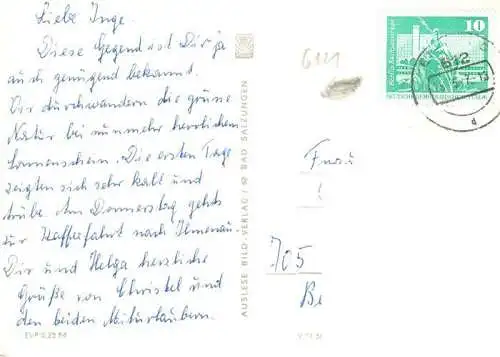 Liebe Inge.
Diese Gegend ist Dir ja
auch genügend bekannt.
Wir durchwandern die grüne
Natur bei nunmehr herrlichem
Sonnenschein. Die ersten Tage
zeigten sich sehr kalt und
trübe. Am Donnerstag gehts
zur Kaffeefahrt nach Ilmenau.
Dir und Helga herzliche
Grüße von Christel und
den beiden Miturlaubern.
EVP 0,25
AUSLESE BILD-VERLAG / 42 BAD SALZUNGEN
6121
10
612
Frau
705